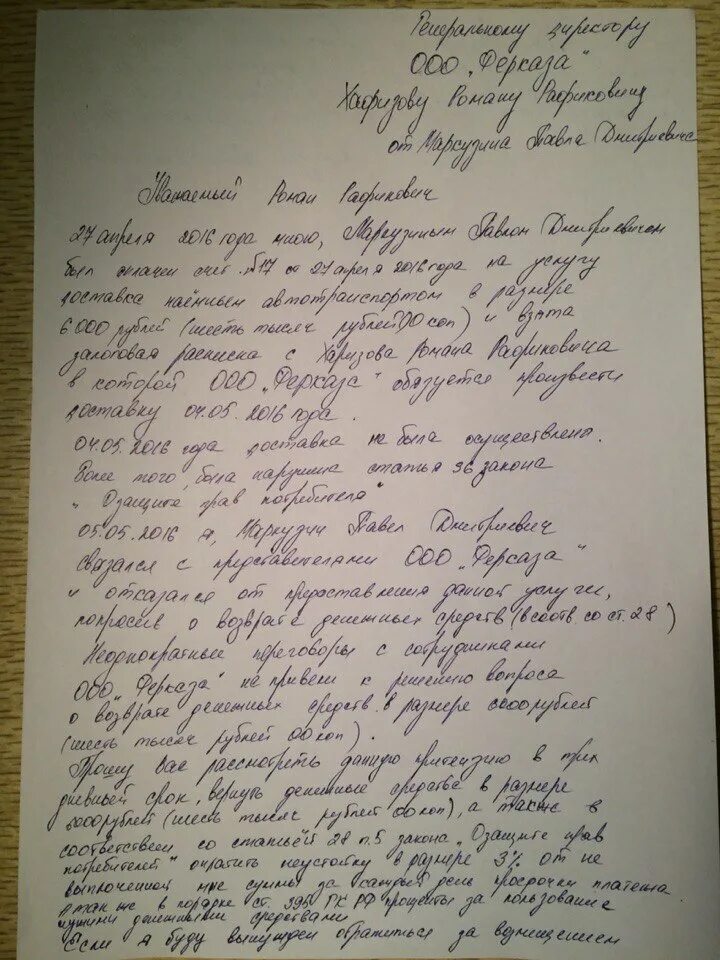 Генеральному директору
ООО „Ферказа"
Хафизову Роману Рафиковичу
от Маркузина Павла Дмитриевича
Уважаемый Роман Рафикович
27 апреля 2016 года мною, Маркузиным Павлом Дмитриевичем
был оплачен счет №17 от 27 апреля 2016 года на услугу
доставка наёмным автотранспортом в размере
6000 рублей (шесть тысяч рублей 00 коп) и взята
залоговая расписка с Харизова Романа Рафиковича
в которой ООО „Ферказа" обязуется произвести
доставку 04.05.2016 года.
04.05.2016 года доставка не была осуществлена.
Более того, была нарушина статья 36 закона
„О защите прав потребителя"
05.05.2016 я, Маркузин Павел Дмитриевич
связался с представителями ООО „Ферказа"
и отказался от предоставления данной услуги,
попросив о возврате денежных средств (в соотв. со ст. 28)
Неоднократные переговоры с сотрудниками
ООО „Ферказа" не привели к решению вопроса
о возврате денежных средств в размере 6000 рублей
(шесть тысяч рублей 00 коп).
Прошу Вас рассмотреть данную притензию в трех
дневный срок, вернуть денежные средства в размере
6000 рублей (шесть тысяч рублей 00 коп), а также в
соответствеи со статьёй 28 п.5 закона „О защите прав
потребителей" оплатить неустойку в размере 3% от не
выплоченной мне суммы за каждый день просрочки платежа
А так же в порядке ст. 395 ГК РФ проценты за пользование
чужими денежными средствами
Если я буду вынужден обратиться за возмещением